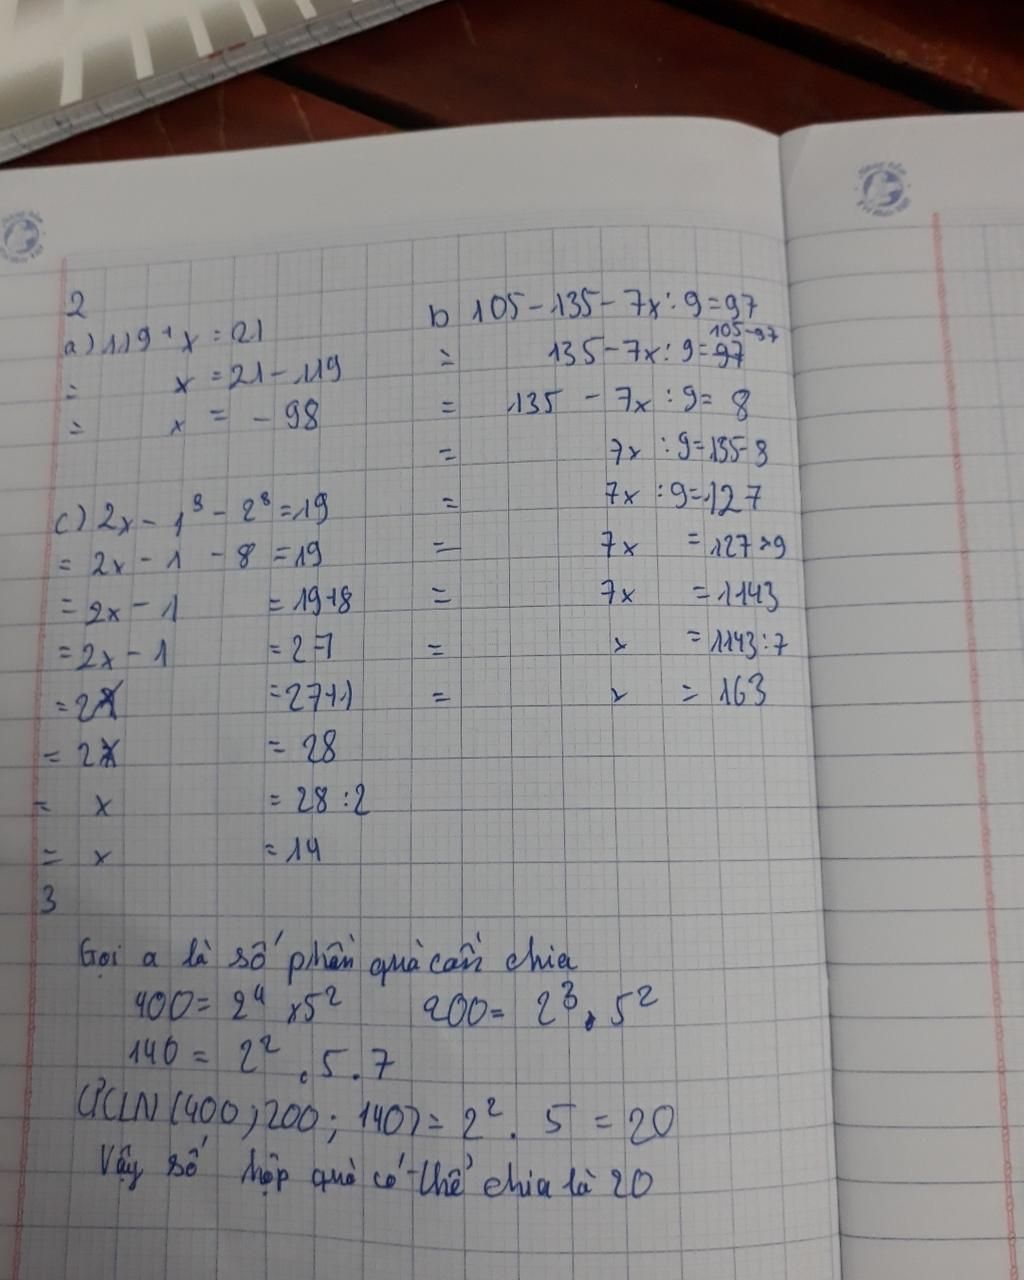 2
a) 119 + x = 21
= x = 21 - 119
= x = - 98
b 105 - 135 - 7x : 9 = 97
105-97
= 135 - 7x : 9 = 97
= 135 - 7x : 9 = 8
= 7x : 9 = 135 - 8
= 7x : 9 = 127
= 7x = 127 x 9
= 7x = 1143
= x = 1143 : 7
= x = 163
c) 2x - 1⁸ - 2⁸ = 19
= 2x - 1 - 8 = 19
= 2x - 1 = 19 + 8
= 2x - 1 = 27
= 2x = 27 + 1
= 2x = 28
= x = 28 : 2
= x = 14
3
Gọi a là số phần quà cần chia
400 = 2⁴ x 5² 200 = 2³ . 5²
140 = 2² . 5 . 7
ƯCLN (400 ; 200 ; 140) = 2² . 5 = 20
Vậy số hộp quà có thể chia là 20